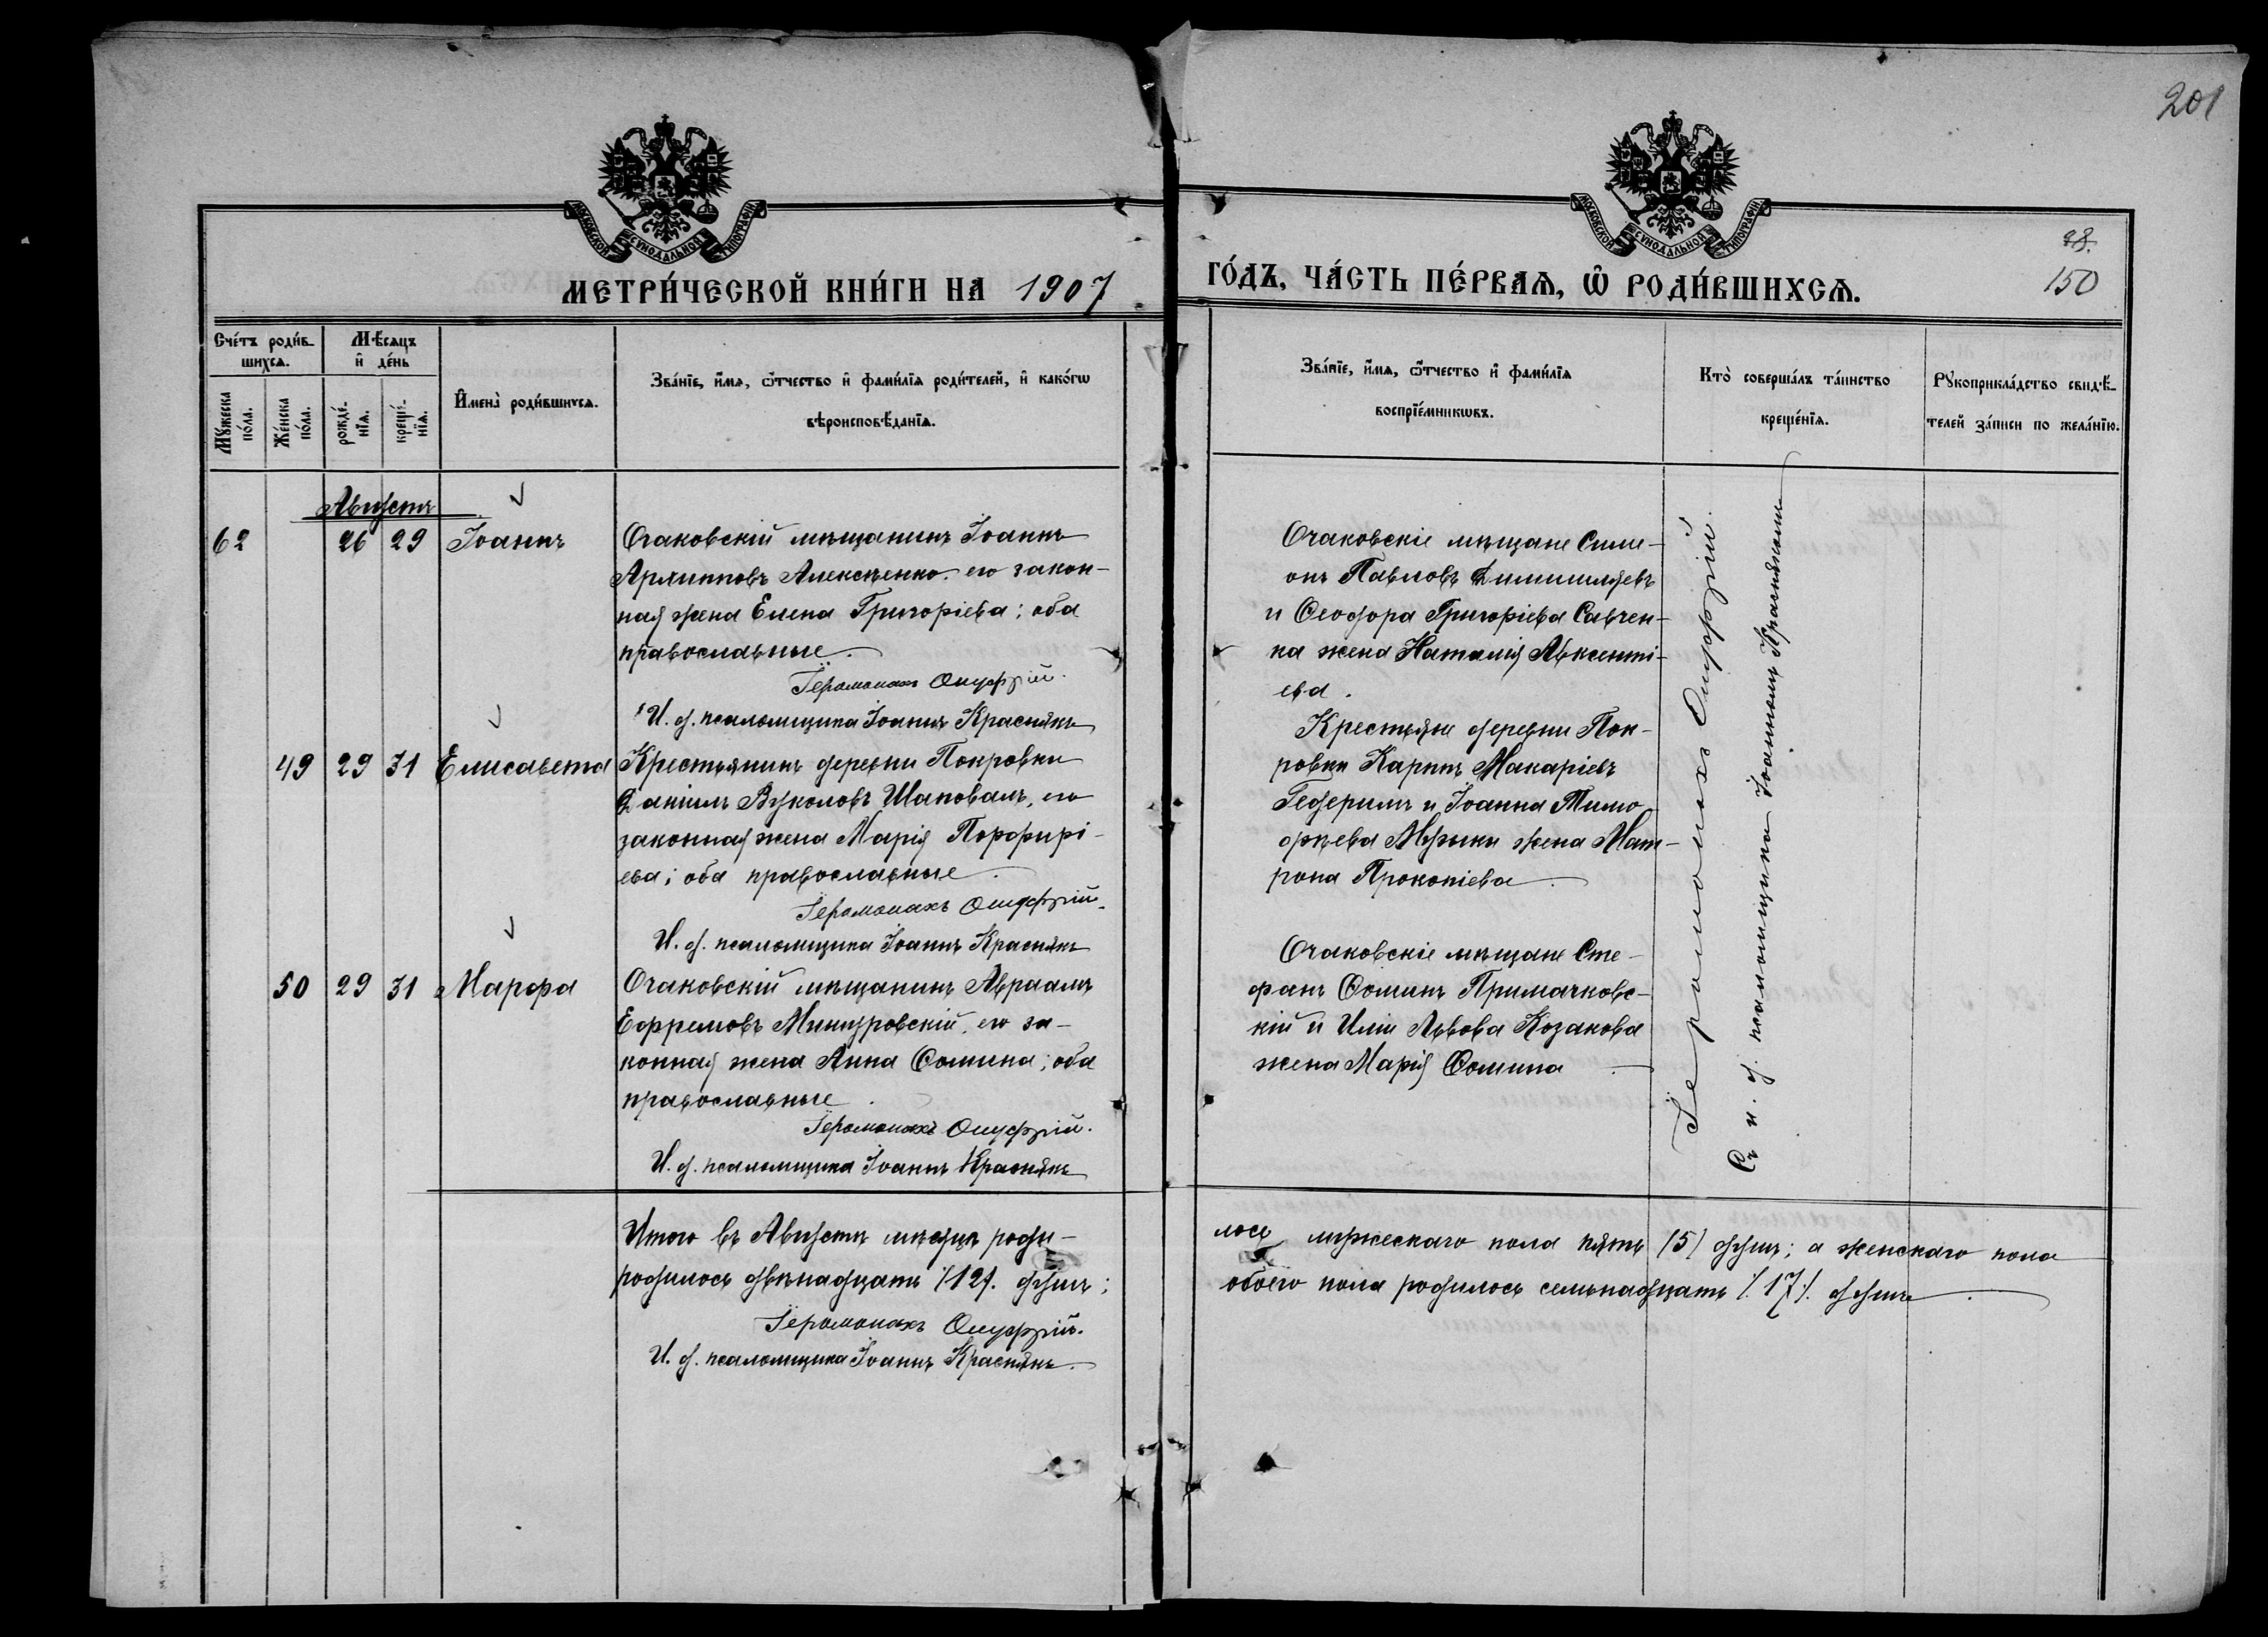 201
МОСКОВСКОЙ СУНОДАЛЬНОЙ ТИПОГРАФІИ
МОСКОВСКОЙ СУНОДАЛЬНОЙ ТИПОГРАФІИ
МЕТРИ́ЧЕСКОЙ КНИ́ГИ НА 1907
ГО́ДЪ, ЧА́СТЬ ПЕ́РВАѦ, Ѡ҆ РОДИ́ВШИХСѦ.
28.
150
Сче́тъ роди́в-
шихсѧ.
Мѣ́сѧцъ
и҆ де́нь
Мꙋ́жеска
по́ла.
Же́нска
по́ла.
рожде́-
нїѧ.
креще́-
нїѧ.
И҆мена̀ роди́вшихсѧ.
Зва́нїе, и҆́мѧ, ѻ҆́тчество и҆ фами́лїѧ роди́телей, и҆ како́гѡ
вѣроисповѣ́данїѧ.
Зва́нїе, и҆́мѧ, ѻ҆́тчество и҆ фами́лїѧ
воспрїе́мникѡвъ.
Кто̀ соверша́лъ та́инство
креще́нїѧ.
Рꙋкоприкла́дство свидѣ́-
телей за́писи по жела́нїю.
Августъ
62 26 29 Іоаннъ
Очаковскій мѣщанинъ Іоаннъ
Архипповъ Алексѣенко. его закон-
ная жена Елена Григоріева; оба
православные.
Іеромонахъ Онуфрій.
И. д. псаломщика Іоаннъ Краснякъ
Очаковскіе мѣщане Симе-
онъ Павловъ
и Ѳеодора Григоріева Савчен-
ка жена Наталія Авксенті-
ева.
49 29 31 Елисавета
Крестьянинъ деревни Покровки
Даніилъ Вуколовъ Шаповалъ, его
законная жена Марія Порфирі-
ева; оба православные.
Іеромонахъ Онуфрій.
И. д. псаломщика Іоаннъ Краснякъ
Крестьяне деревни Пок-
ровки Карпъ Макаріевъ
и Іоанна Тимо-
ѳеева Музыки жена Мат-
рона Прокопіева.
50 29 31 Марѳа
Очаковскій мѣщанинъ Авраамъ
Ефремовъ его за-
конная жена Анна Ѳомина; оба
православные.
Іеромонахъ Онуфрій.
И. д. псаломщика Іоаннъ Краснякъ
Очаковскіе мѣщане Сте-
фанъ Ѳоминъ Примачковс-
кій и Иліи Львова Козакова
жена Марія Ѳомина
Іеромонахъ Онуфрій.
Съ и. д. псаломщика Іоанномъ Краснякомъ
Итого въ Августѣ мѣсяцѣ роди-
лось мужескаго пола пять /5/ душъ; а женскаго пола
родилось двѣнадцать /12/. душъ;
обоего пола родилось семьнадцать /.17./. душъ.
Іеромонахъ Онуфрій.
И. д. псаломщика Іоаннъ Краснякъ.